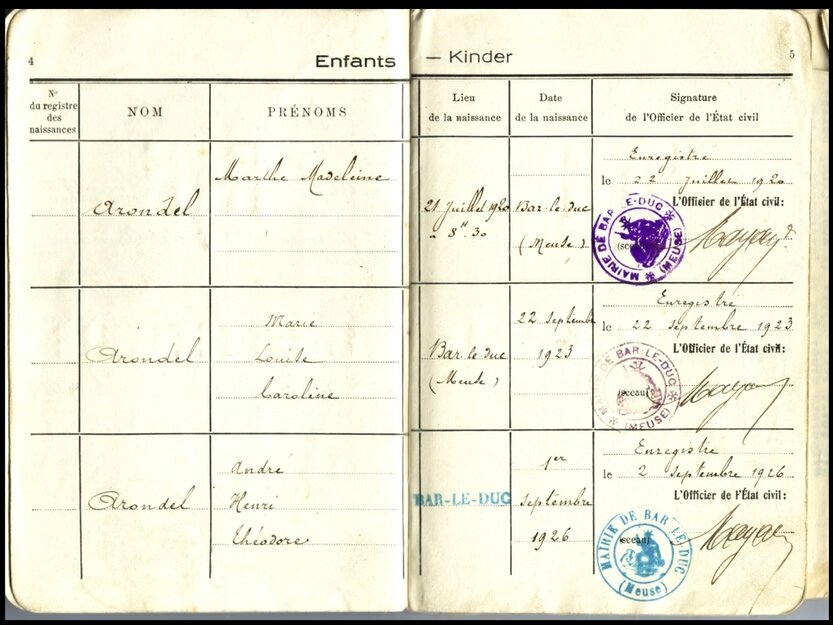 4
Enfants — Kinder
5
N° du registre des naissances
NOM
PRÉNOMS
Lieu de la naissance
Date de la naissance
Signature de l'Officier de l'État civil
Arondel
Marthe Madeleine
21 Juillet 1920
à 8 H 30
Bar-le-duc
(Meuse)
Enregistré
le 22 Juillet 1920
L'Officier de l'État civil:
(sceau)
MAIRIE DE BAR-LE-DUC
(MEUSE)
Arondel
Marie
Louise
Caroline
Bar-le-duc
(Meuse)
22 Septembre
1923
Enregistré
le 22 Septembre 1923
L'Officier de l'État civil:
(sceau)
MAIRIE DE BAR-LE-DUC
(MEUSE)
Arondel
André
Henri
Théodore
BAR-LE-DUC
1er
Septembre
1926
Enregistré
le 2 Septembre 1926
L'Officier de l'État civil:
(sceau)
MAIRIE DE BAR-LE-DUC
(Meuse)